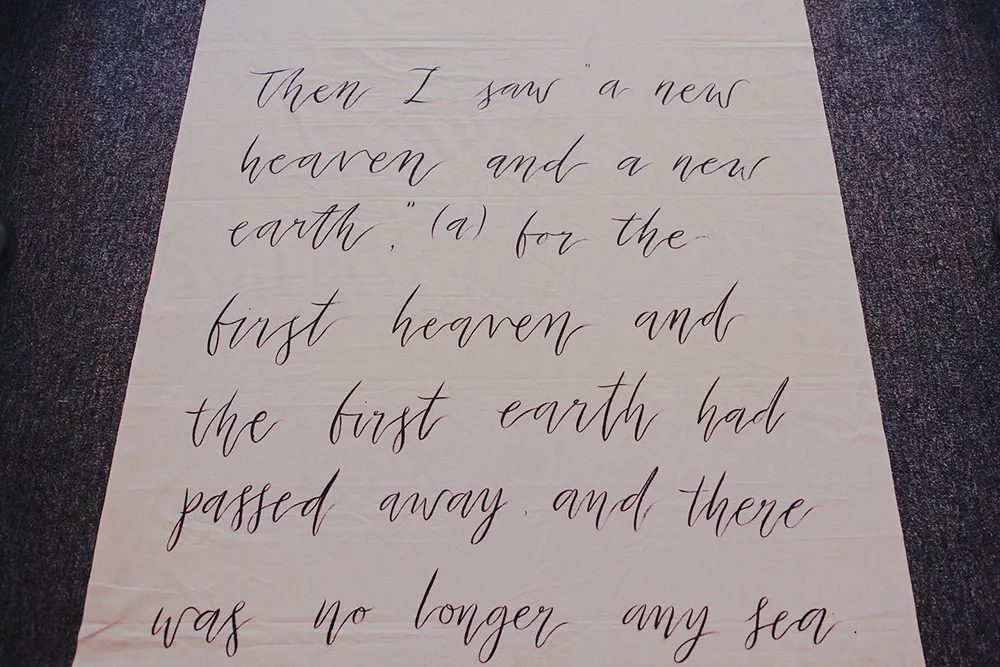 Then I saw "a new
heaven and a new
earth," (a) for the
first heaven and
the first earth had
passed away, and there
was no longer any sea.